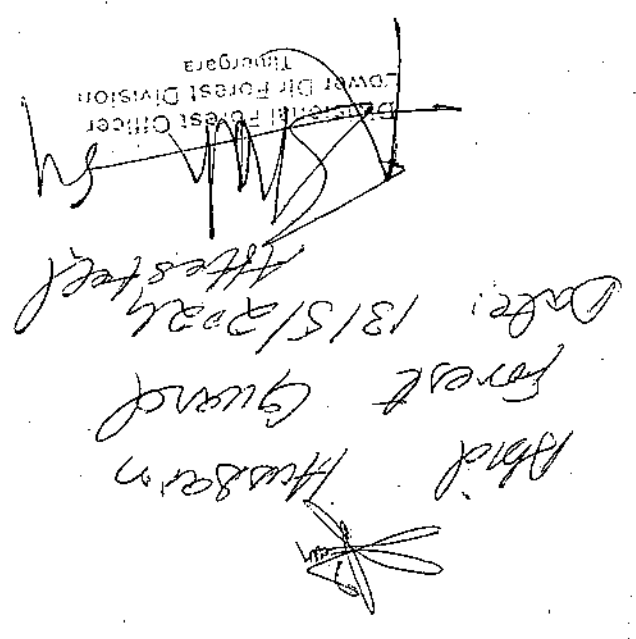 Abid Hussain
Forest Guard
Date: 13/5/2024
Attested
Divisional Forest Officer
Lower Dir Forest Division
Timergara